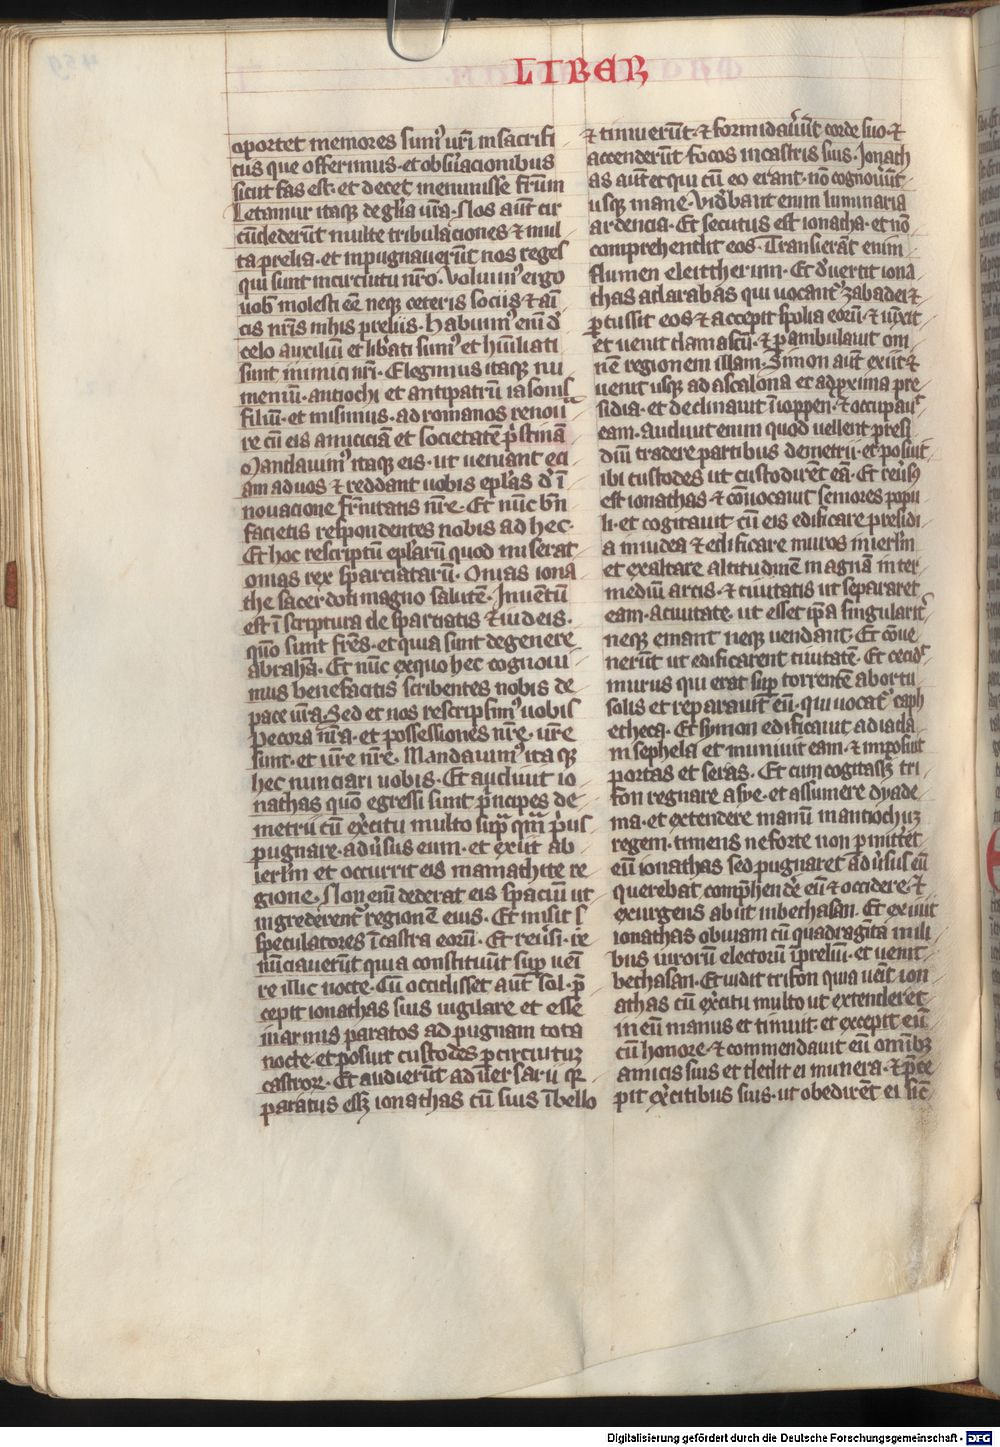 LIBER
oportet memores sumꝰ vr̄i in sacrifi
ciis que offerimus · et obẜuacionibus
sicut fas est · et decet meminisse fr̄um
Letamur itaqꝫ de gl̄ia vr̄a · Nos aūt cir
cūdederūt multe tribulaciones ⁊ mul
ta prelia · et inpugnauerūt nos reges
qui sunt incircuitu nr̄o · Voluimꝰ ergo
uob̄ molesti eē neqꝫ ceteris sociis ⁊ ami
cis nr̄is in his preliis · Habuimꝰ eni de
celo auxiliū et lib̄ati sumꝰ et hūiliati
sunt inimici nr̄i · Elegimus itaqꝫ nu
meniū · antiochi et antipatrū iasonis
filiū · et misimus · ad romanos renoua
re cū eis amiciciā et societatē p̄stinā
Mandauimꝰ itaqꝫ eis · ut veniant eci
am ad uos ⁊ reddant uobis epl̄as de ī
nouacione fr̄nitatis nr̄e · Et nūc bn̄
facietis respondentes nobis ad hec ·
Et hoc rescriptū epl̄arū quod miserat
onias rex sparciatarū · Onias iona
the sacerdoti magno salutē · Inuentū
est ī scriptura de sparciatis ⁊ iudeis ·
quo sunt fr̄es · et quia sunt de genere
abrahā · Et nūc ex quo hec cognoui
mus benefacitis scribentes nobis de
pace vr̄a · Sed et nos rescripsimꝰ uobis
Pecora nr̄a · et possessiones nr̄e · vr̄e
sunt · et vr̄e nr̄e · Mandauimꝰ itaqꝫ
hec nunciari uobis · Et audiuit io
nathas quo egressi sunt p̄ncipes de
metrii cū ex̄citu multo sup̄ qm̄ p̄us
pugnare · adūsus eum · et exiit ab
ierl̄m et occurrit eis in amathite re
gione · Non em̄ dederat eis spaciū ut
ingrederentꝰ regionē eius · Et misit s
speculatores ī castra eorū · Et reuersi · re
nūciauerūt quia constituūt sup̄ ueī
re illic nocte · Cū occidisset aūt sol · p̄
cepit ionathas suis uigilare et esse
in armis paratos ad pugnam tota
nocte · et posuit custodes p̲ circuituꝫ
castroꝝ · Et audierūt aduersarii qꝛ
paratus esꝫ ionathas cū suis ī bello
⁊ timuerūt · ⁊ formidauēut corde suo · ⁊
accenderūt focos in castris suis · Jonath
as aūt et qui cū eo erant · nō cognouēut
usqꝫ mane · Videbant enim luminaria
ardencia · Et secutus est ionatha · et nō
comprehendit eos · Transierāt enim
flumen eleutherum · Et diuertit iona
thas ad arabas qui uocantꝰ zabadei ⁊
p̲cussit eos ⁊ accepit spolia eorū · ⁊ iūxit
et uenit damascū · ⁊ p̲ambulauit om
nē regionem illam · Simon aūt exiit ⁊
uenit usqꝫ ad ascalona et ad p̲xima pre
sidia · et declinauit ī ioppen · ⁊ occupauꝰ
eam · Audiuit enim quod uellent presi
diū tradere partibus demetrii · et posuit
ibi custodes ut custodirēt eā · Et reuersꝰ
est ionathas · ⁊ cōuocauit seniores popu
li · et cogitauit cū eis edificare presidi
a in iudea ⁊ edificare muros in ierl̄m
et exaltare altitudinē in agnā inter
mediū arcis · ⁊ ciuitatis ut separaret
eam · a ciuitate · ut esset ip̄a singularitꝰ
neqꝫ emant neqꝫ uendant · Et cōue
nerūt ut edificarent ciuitatē · Et cecidꝰ
murus qui erat sup̄ torrentē ab ortu
solis et reparauit eū · qui uocatꝰ caph
etheca · Et symon edificauit adiada
in sephela et muniuit eam · ⁊ imposuit
portas et seras · Et cum cogitasꝫ tri
fon regnare asye · et assumere dyade
ma · et extendere manū in antiochuꝫ
regem · timens ne forte non p̲mittēt
eū ionathas sed pugnaret adūsus eū
querebat comp̄hendē eū ⁊ occidere · ⁊
exurgens abiit in bethasan · Et exiuit
ionathas obuiam cū quadraginta mili
bus uirorū electorū ī preliū · et uenit
bethasan · Et uidit trifon quia uēit ion
athas cū ex̄citu multo ut extenderet
in eū manus et timuit · et excepit eū
cū honore · ⁊ commendauit eū omībꝫ
amicis suis et dedit ei munera · ⁊ p̄ce
pit ex̄citibus suis · ut obedirēt ei sic̄
Digitalisierung gefördert durch die Deutsche Forschungsgemeinschaft - DFG